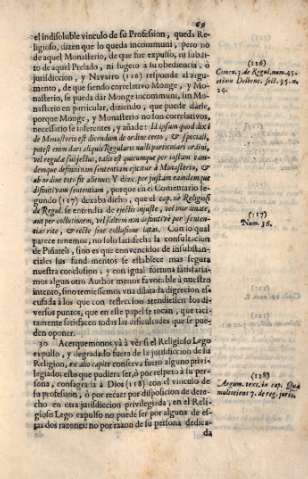 69
el indisoluble vinculo de su Profesion, queda Re-
ligioso, dizen que lo queda incommuni, pero no
de aquel Monasterio, de que fue expulso, ni subdi-
to de aquel Prelado, ni sugeto à su obediencia, ó
jurisdiccion, y Navarro (126) responde al argu-
mento, de que siendo correlativo Monge, y Mo-
nasterio, se pueda dàr Monge incommuni, sin Mo-
nasterio en particular, diziendo, que puede darse,
porque Monge, y Monasterio no son correlativos,
necessario se inferentes, y añade:
de Monasterio est dicendum de ordine certo, & speciali,
potest enim dari aliquis Regularis nulli particulari ordini,
vel regulæ subjectus, talis est quicumque per justam eam-
demque difinitivam sententiam ejectus à Monasterio, &
ab ordine
difinitivam sententiam, porque en el Comentario se-
gundo (127) dexaba dicho, que el cap.
de Regul. se entenda de ejectis injuste, vel
aut per collusionem, vel saltem non difinitivè per senten-
tiam ritè, & rectè sine collusione latam. Con lo qual
parece tenemos, no solo satisfecha la consultacion
de Piñateli, sino es que convencidos de insubstan-
ciales sus fundamentos se establece mas segura
nuestra conclusion; y con igual fortuna satisfaria-
mos algun otro Author menos favorable à nuestro
intento, sino temiessemos una dilatada digression, es-
cusada à los que con reflexion atendiessen los di-
versos puntos, que en este papel se tocan, que taci-
tamente satisfacen todas las dificultades que se pue-
den oponer.
30 Acerquemonos yà à vèr si el Religioso Lego
expulso, y degradado fuera de la jurisdiccion de su
Religion, ex alio capite conserva fuero alguno privi-
legiado: este que pudiera ser, ò por respeto à su per-
sona, consagrada à Dios (128) con el vinculo de
su profesion, ò por recaer por disposicion de derecho
en otra jurisdiccion privilegiada, en el Reli-
gioso Lego expulso no puede ser por alguna de es-
tas dos razones: no por razon de su persona dedica-
da
(126)
Comen. 3. de Regul. num. 45.
(127)
Num. 38.
(128)
Argum. text. in cap. Qua